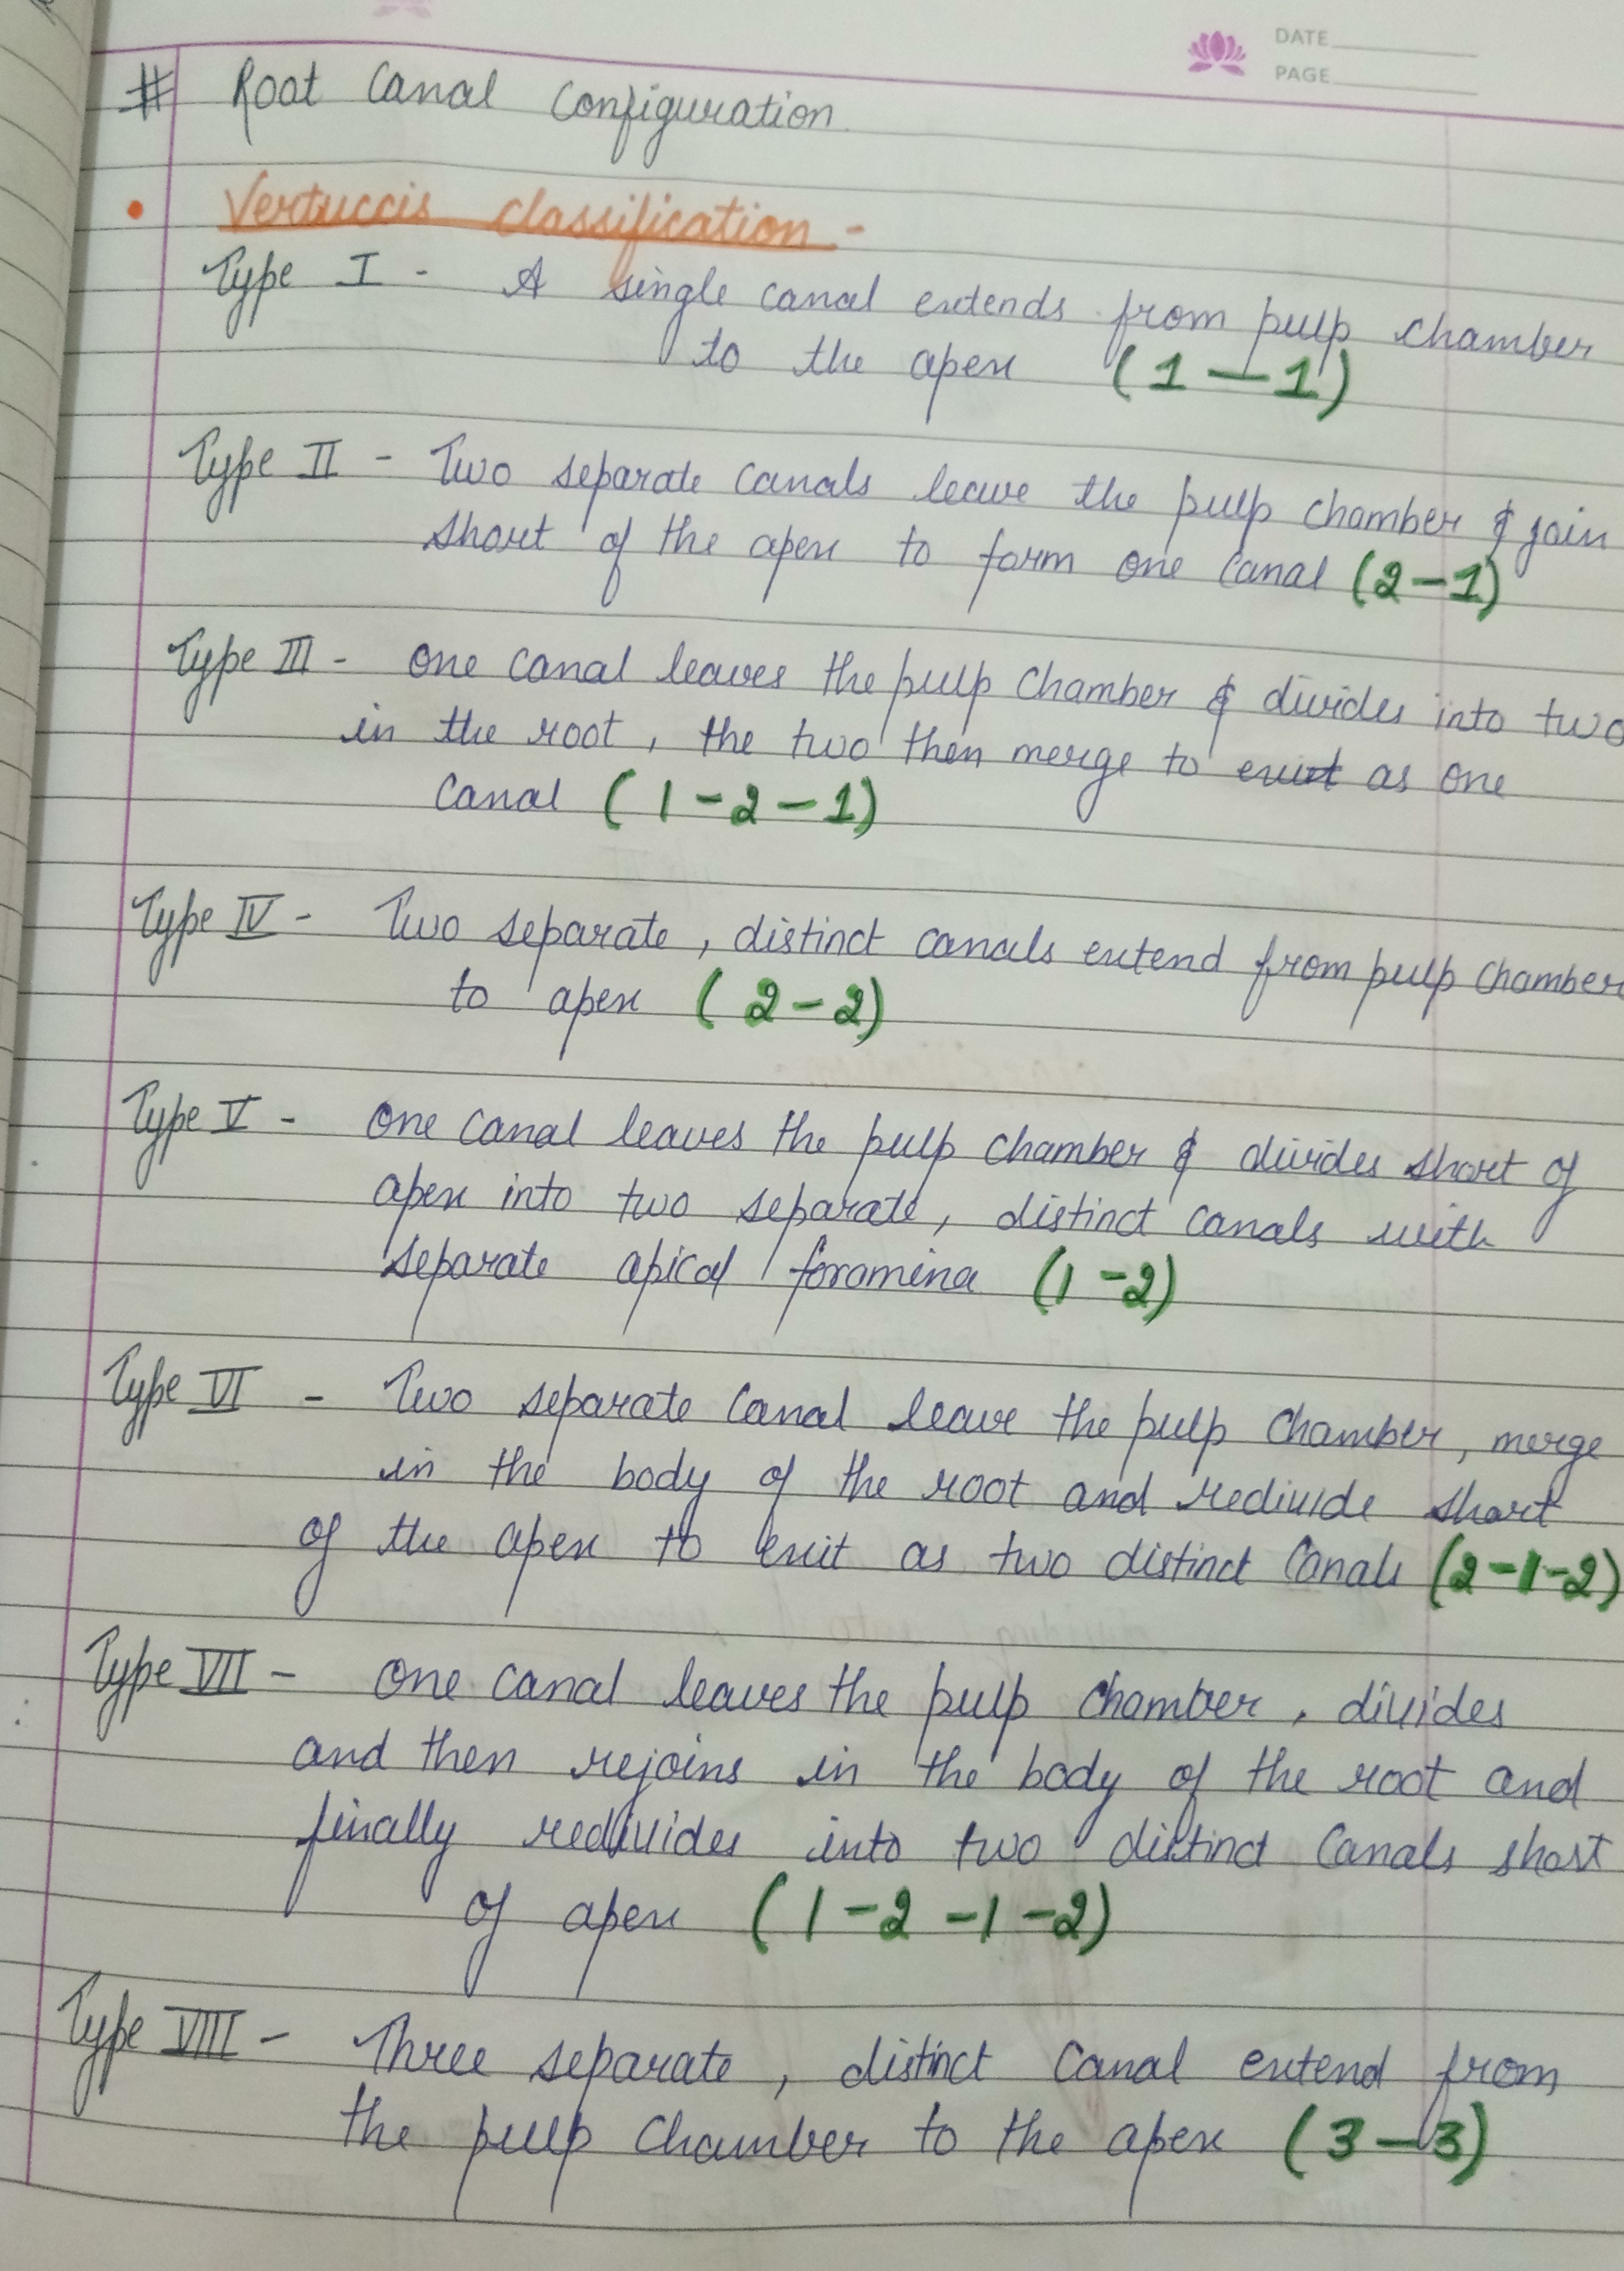 DATE
PAGE
# Root Canal Configuration
• Vertuccis classification -
Type I - A single canal extends from pulp chamber
to the apex (1 - 1)
Type II - Two separate canals leave the pulp chamber & join
short of the apex to form one canal (2 - 1)
Type III - One canal leaves the pulp chamber & divides into two
in the root, the two then merge to exit as one
canal (1 - 2 - 1)
Type IV - Two separate, distinct canals extend from pulp chamber
to apex (2 - 2)
Type V - One canal leaves the pulp chamber & divides short of
apex into two separate, distinct canals with
separate apical foramina (1 - 2)
Type VI - Two separate canal leave the pulp chamber, merge
in the body of the root and redivide short
of the apex to exit as two distinct canals (2 - 1 - 2)
Type VII - One canal leaves the pulp chamber, divides
and then rejoins in the body of the root and
finally redivides into two distinct canals short
of apex (1 - 2 - 1 - 2)
Type VIII - Three separate, distinct canal extend from
the pulp chamber to the apex (3 - 3)